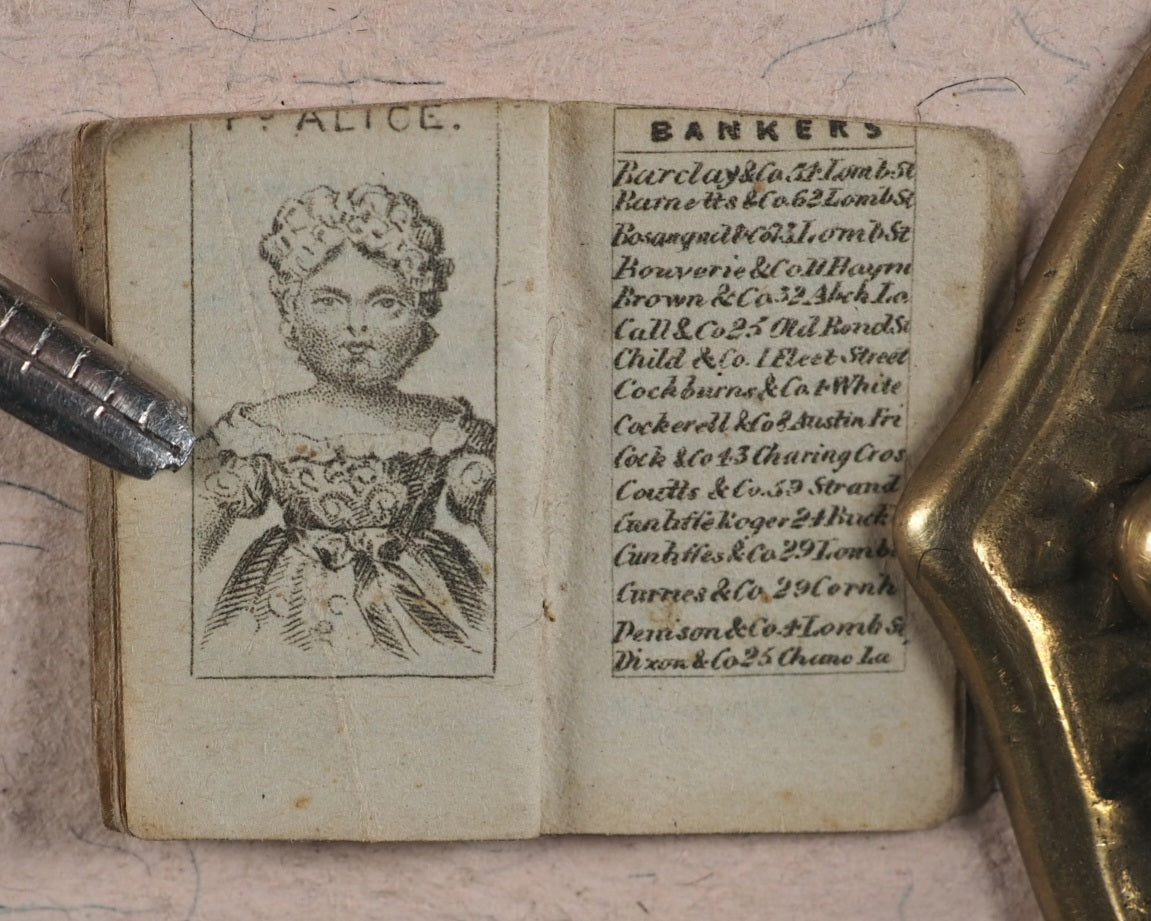 Pˢ ALICE.
BANKERS
Barclay&Co.54Lomb St
Barnetts &Co.62LombSt
Bosanquet&Co73LombSt
Bouverie &Co11Haym
Brown &Co32Abch La
Call & Co25 Old Bond St
Child &Co. 1 Fleet Street
Cockburns&Co.4White
Cockerell &Co8 Austin Fri
Cock &Co43 Charing Cros
Coutts &Co.59 Strand
Cunliffe Roger 24Buck
Cunliffes&Co29Lomb
Curries &Co 29Cornh
Denison&Co.4Lomb St
Dixon&Co25 Chanc La